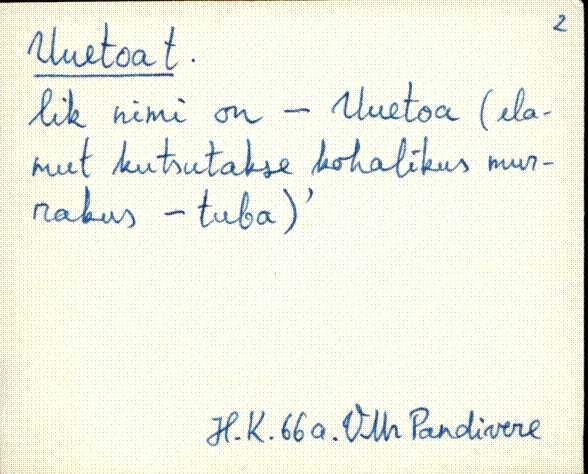 2
Uuetoa t.
lik nimi on – Uuetoa (ela-
mut kutsutakse kohalikus mur-
rakus – tuba)'
H.K. 66a. VMr Pandivere